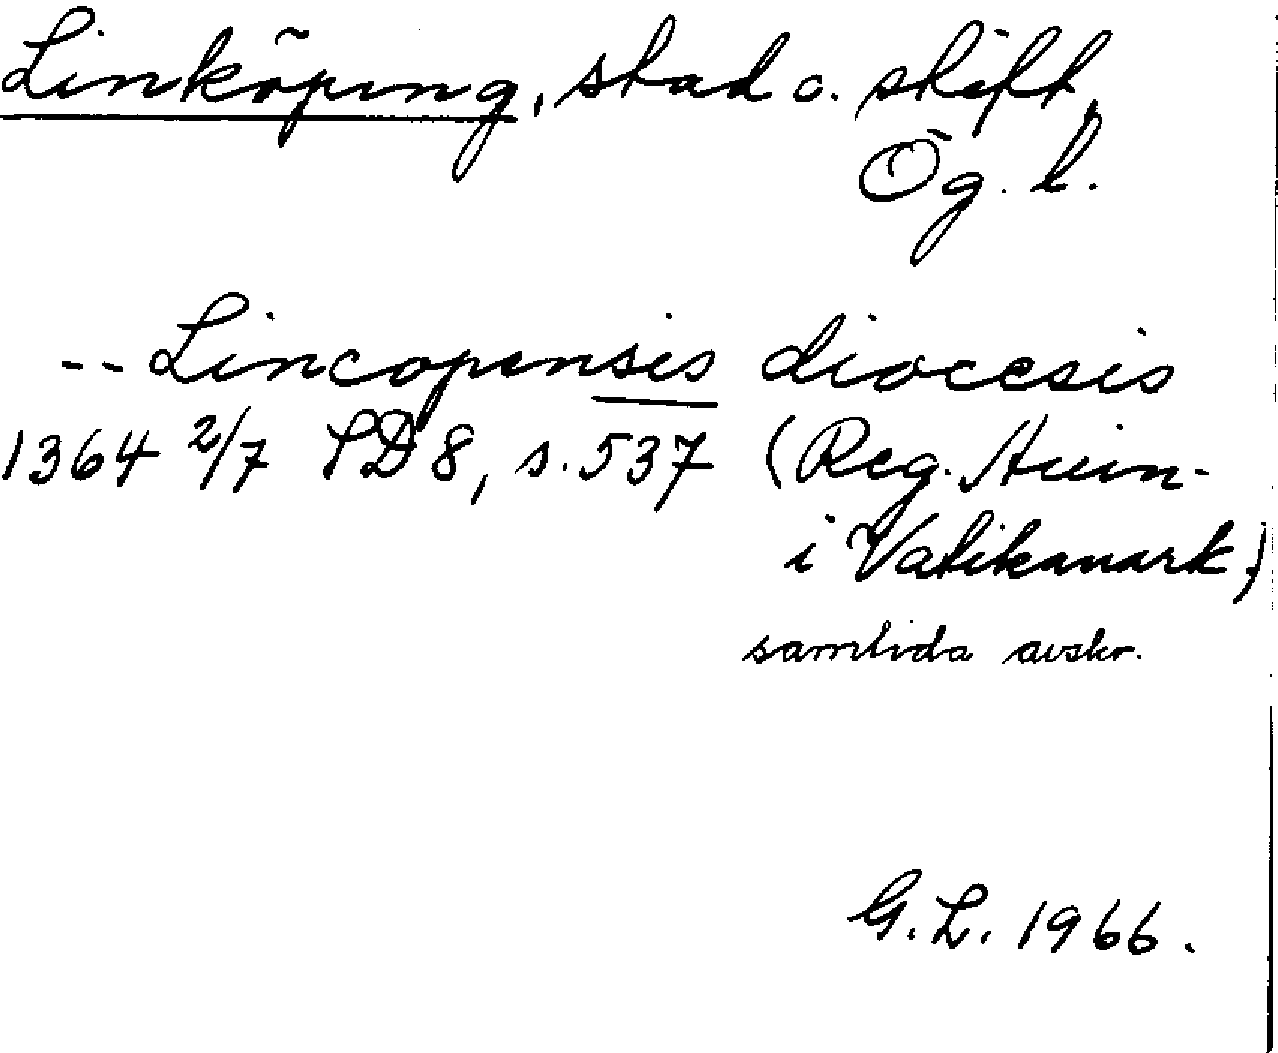 Linköping, stad o. stift,
Ög. l.
-- Lincopensis diocesis
1364 2/7 SD 8, s. 537 (Reg. Avin-
i Vatikanark.)
samtida avskr.
G.L. 1966.